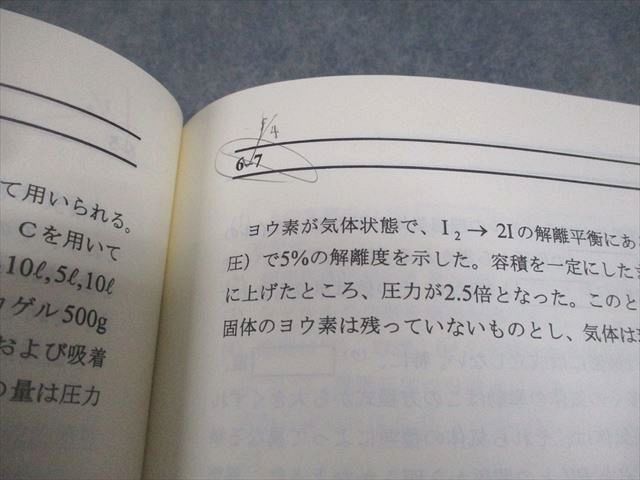 て用いられる。
Cを用いて
10ℓ,5ℓ,10ℓ
ゲル500g
および吸着
の量は圧力
4
6-7
ヨウ素が気体状態で、I₂→2Iの解離平衡にあ
圧）で5%の解離度を示した。容積を一定にした
に上げたところ、圧力が2.5倍となった。このと
固体のヨウ素は残っていないものとし、気体は